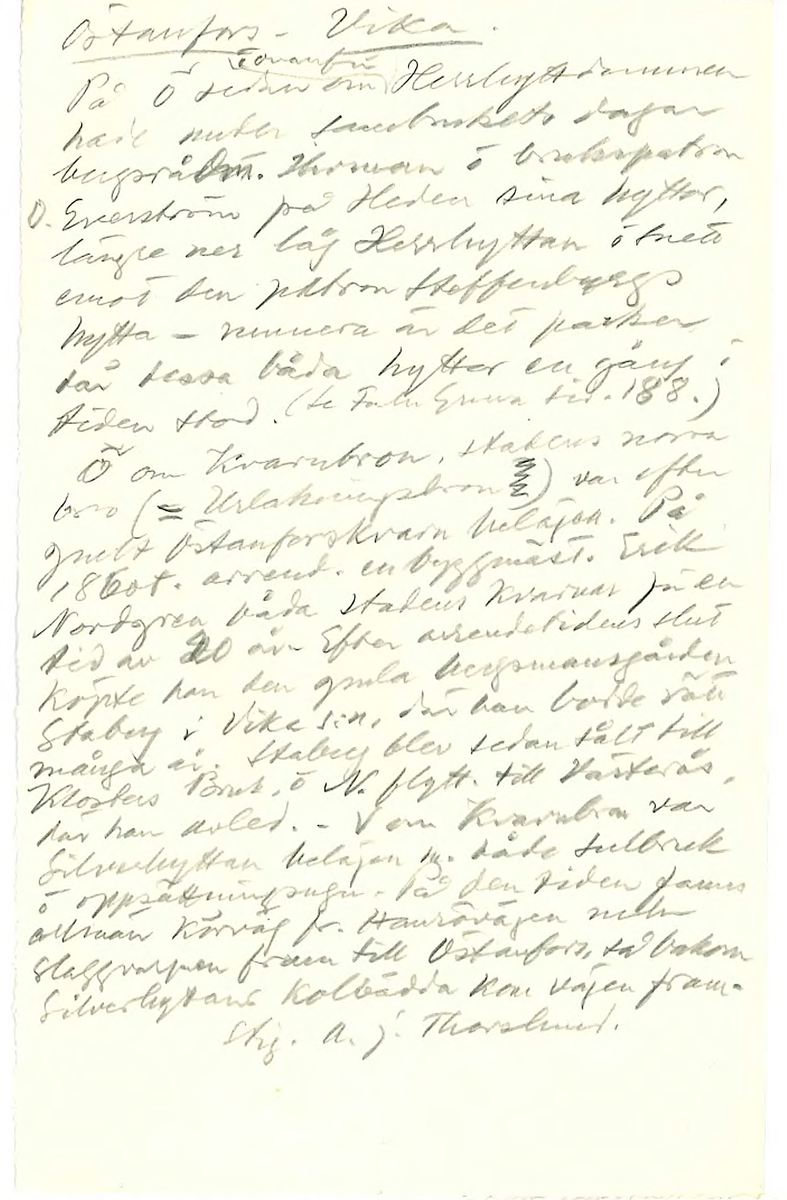 Östanfors - Vika.
ovanför
På Ö sidan om Herrhyttdammen
hade under sambrukets dagar
bergsrådm. Thoman ö brukspatron
O. Everström på Heden sina hyttor,
längre ner låg Herrhyttan ö snett
emot den patron Steffenburgs
hytta - numera är det parker
där dessa båda hyttor en gång i
tiden stod. (Se Falu Gruva sid. 188.)
Ö om Kvarnbron, stadens norra
bro (= Urlakningsbron) var efter
gmlt Östanforskvarn belägen. På
1860t. arrend. en byggmäst. Erik
Nordgren båda stadens kvarnar på en
tid av 20 år. Efter arrendetidens slut
köpte han den gmla bergsmansgården
Staberg i Vika s:n, där han bodde rätt
många år. Staberg blev sedan sålt till
Klosters Bruk, ö N. flytt. till Västerås,
där han avled. - V om Kvarnbron var
Silverhyttan belägen m. både sulbruk
ö uppsättningsugn. På den tiden fanns
allmän körväg fr. Hanrövägen
slaggvarpen fram till Östanfors, så bakom
Silverhyttans kolbädda kom vägen fram.
Stig. A. J. Thorslund.